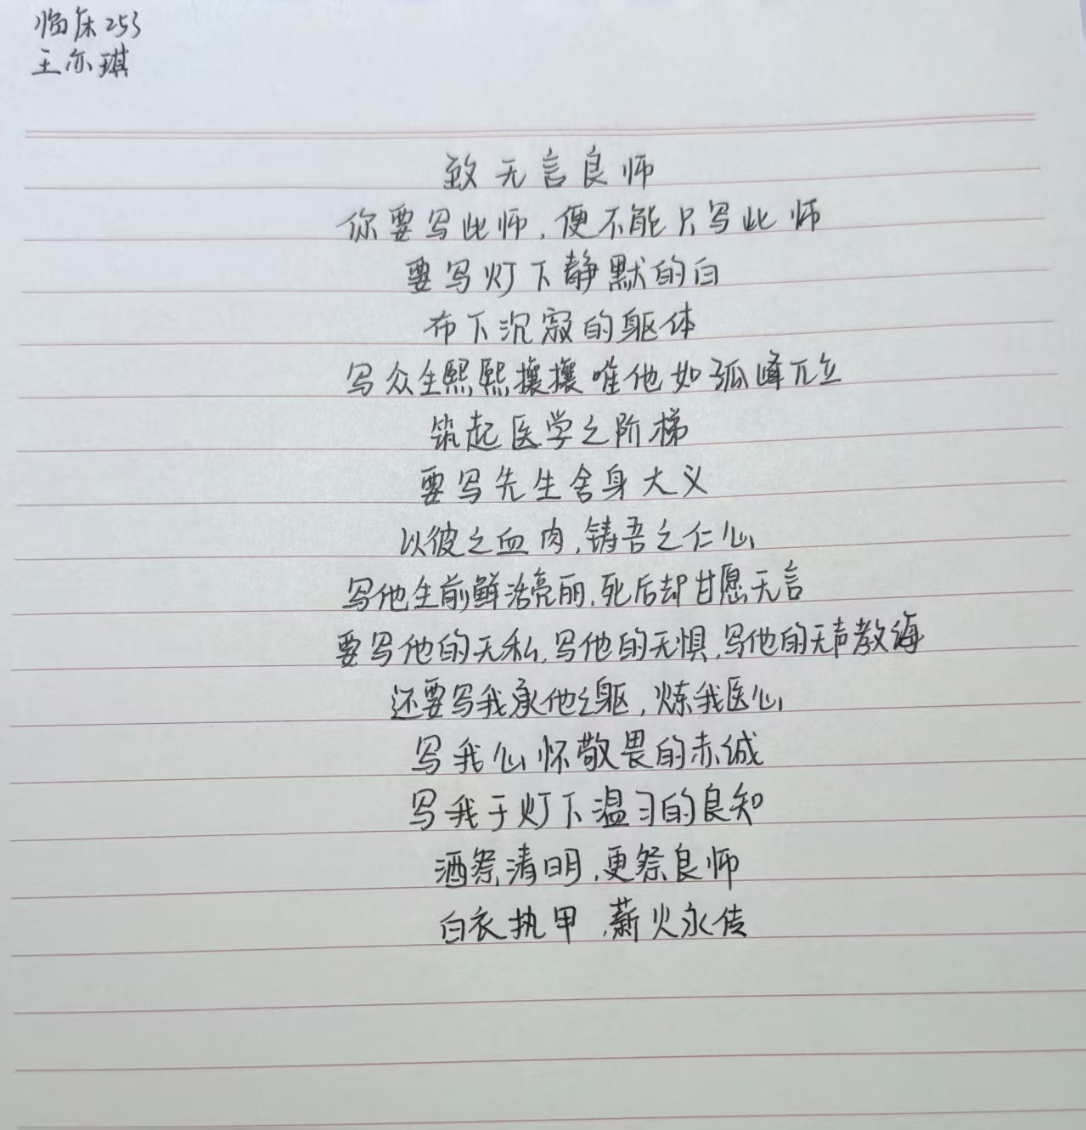 临床253
王亦琪
致无言良师
你要写此师,便不能只写此师
要写灯下静默的白
布下沉寂的躯体
写众生熙熙攘攘唯他如孤峰兀立
筑起医学之阶梯
要写先生舍身大义
以彼之血肉,铸吾之仁心
写他生前鲜活亮丽,死后却甘愿无言
要写他的无私,写他的无惧,写他的无声教诲
还要写我承他之躯,炼我医心
写我心怀敬畏的赤诚
写我于灯下温习的良知
酒祭清明,更祭良师
白衣执甲,薪火永传